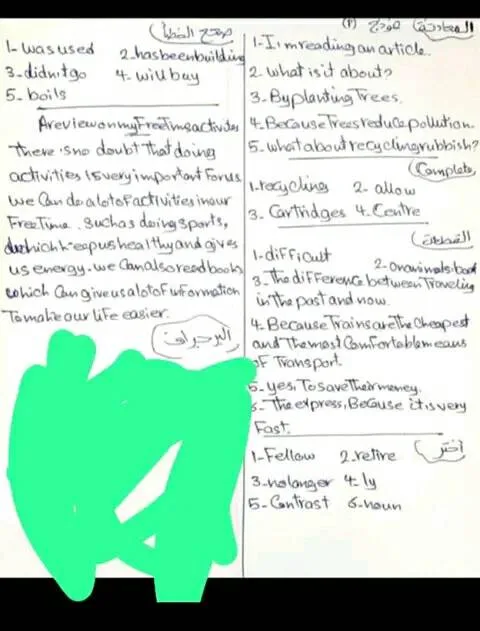 المحادثة نموذج (٣)
1-I'm reading an article.
2. what is it about?
3- By planting Trees.
4-Because Trees reduce pollution.
5. what about recycling rubbish?
Complete
1.recycling 2- allow
3. Cartridges 4. Centre
القطعة
1-difficult
2-on animals back
3. The difference between Traveling
in the past and now.
4. Because Trains are The cheapest
and The most Comfortable means
of Transport.
5-yes, To save Their money.
6- The express, Because it is very
Fast.
اختر
1-Fellow 2.retire
3-no longer 4-ly
5-Contrast 6-noun
صحح الخطأ
1- was used 2.has been building
3-didn't go 4- will buy
5- boils
A review on my Free Time activites
There is no doubt That doing
activities is very important For us
we Can do a lot of activities in our
Free Time. such as doing sports,
which keep us healthy and gives
us energy. we Can also read books
which Can give us a lot of information
To make our life easier.
البرجراف